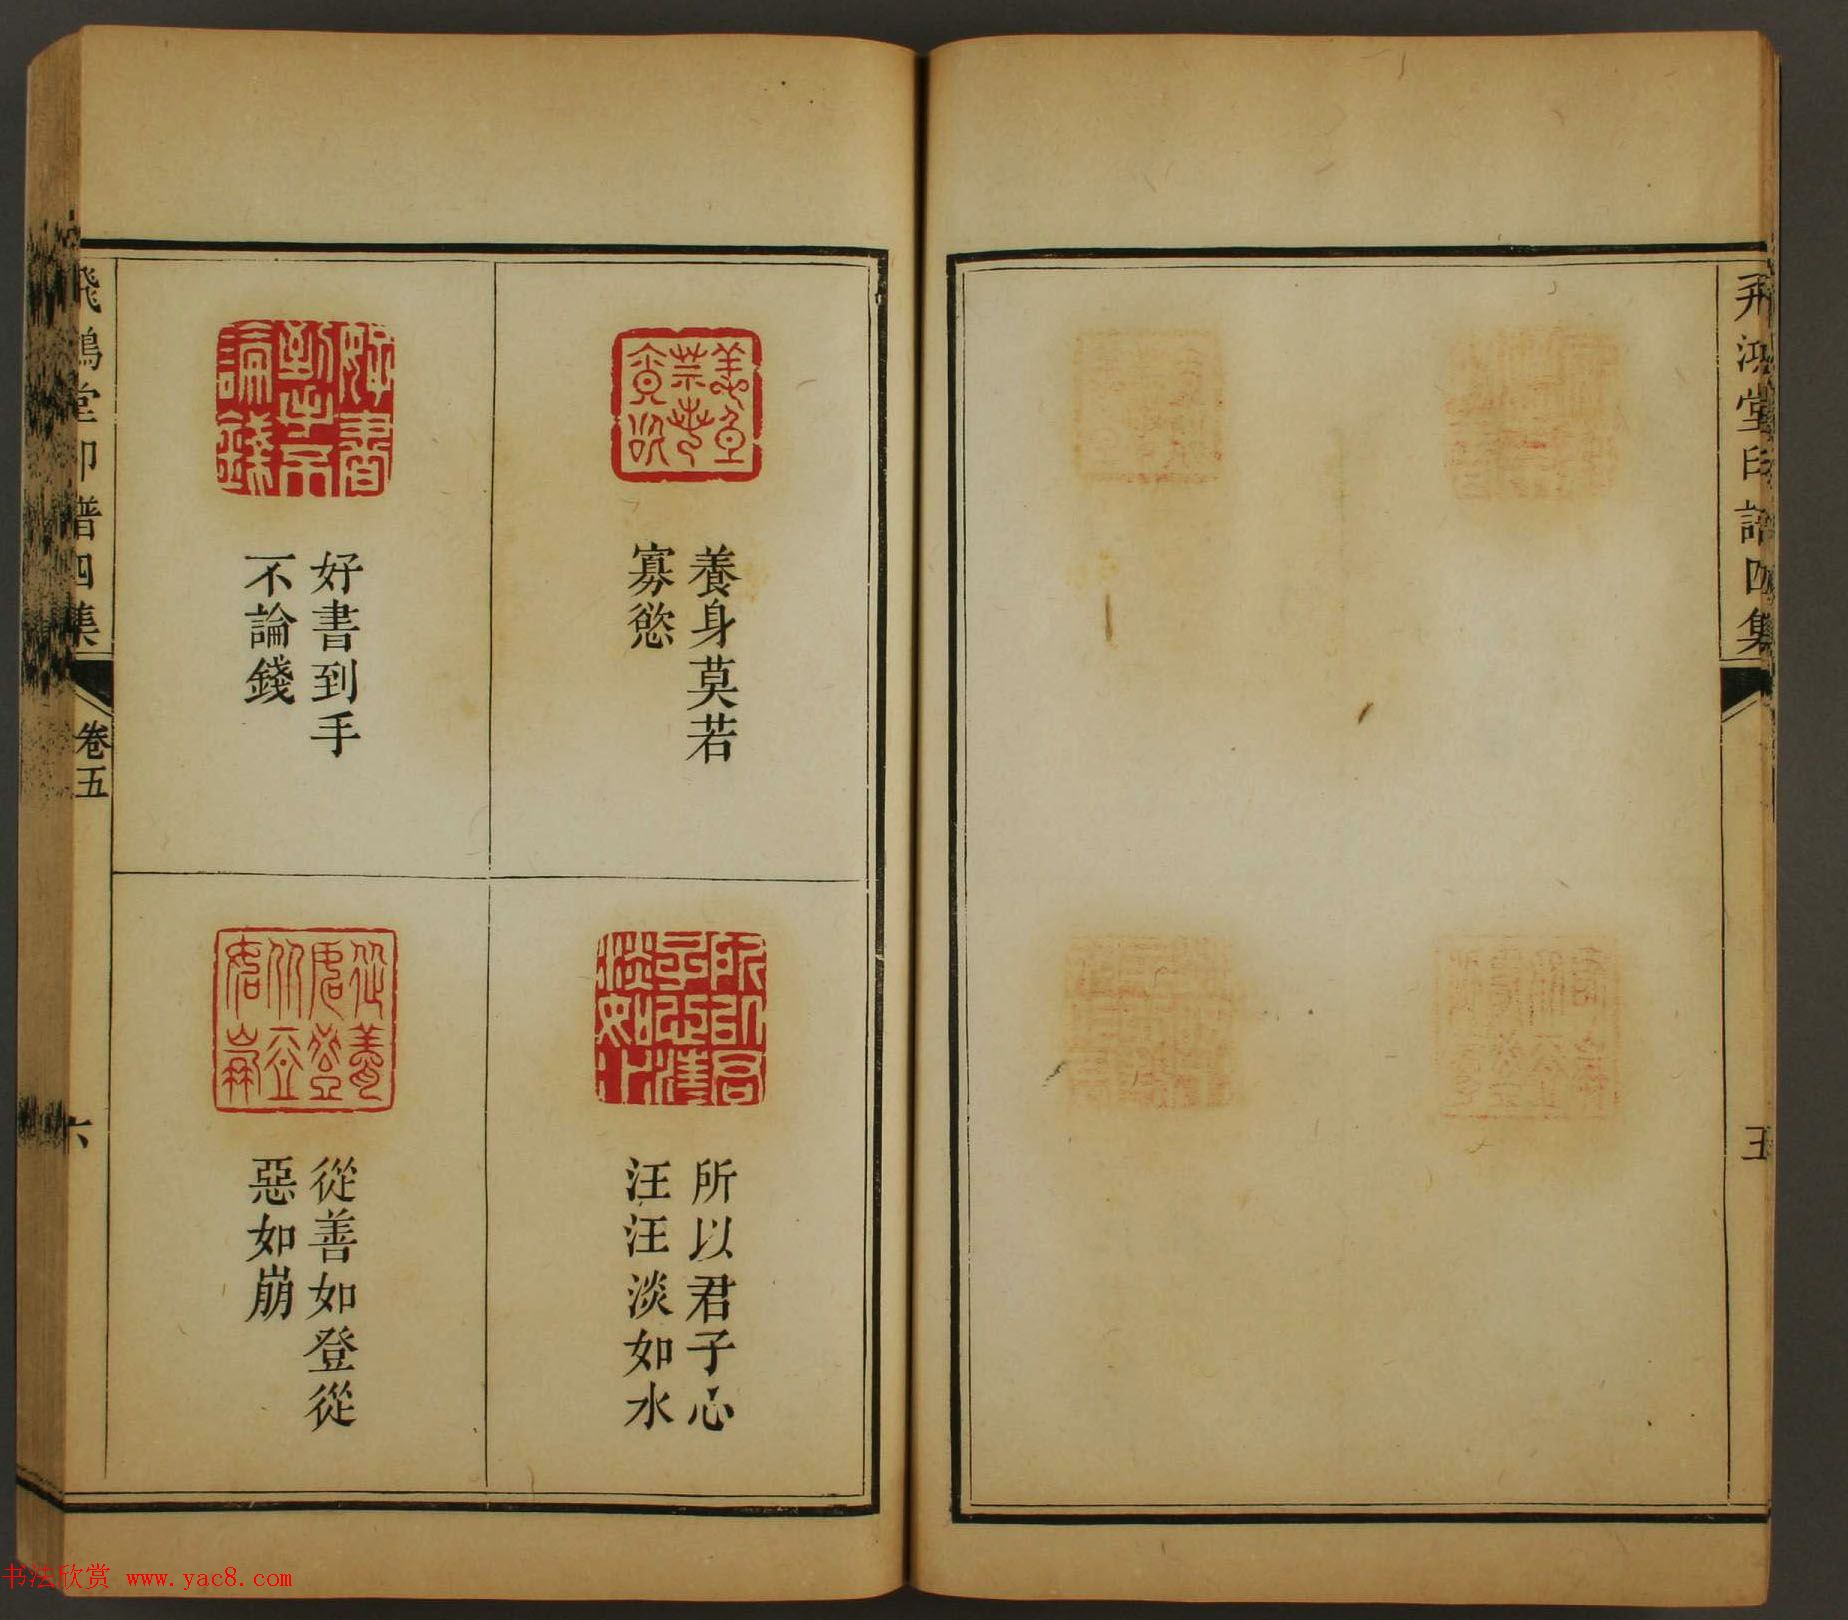 飛鴻堂印譜四集
五
養身莫若
寡慾
好書到手
不論錢
所以君子心
汪汪淡如水
從善如登從
惡如崩
飛鴻堂印譜四集
卷五
六
书法欣赏 www.yac8.com